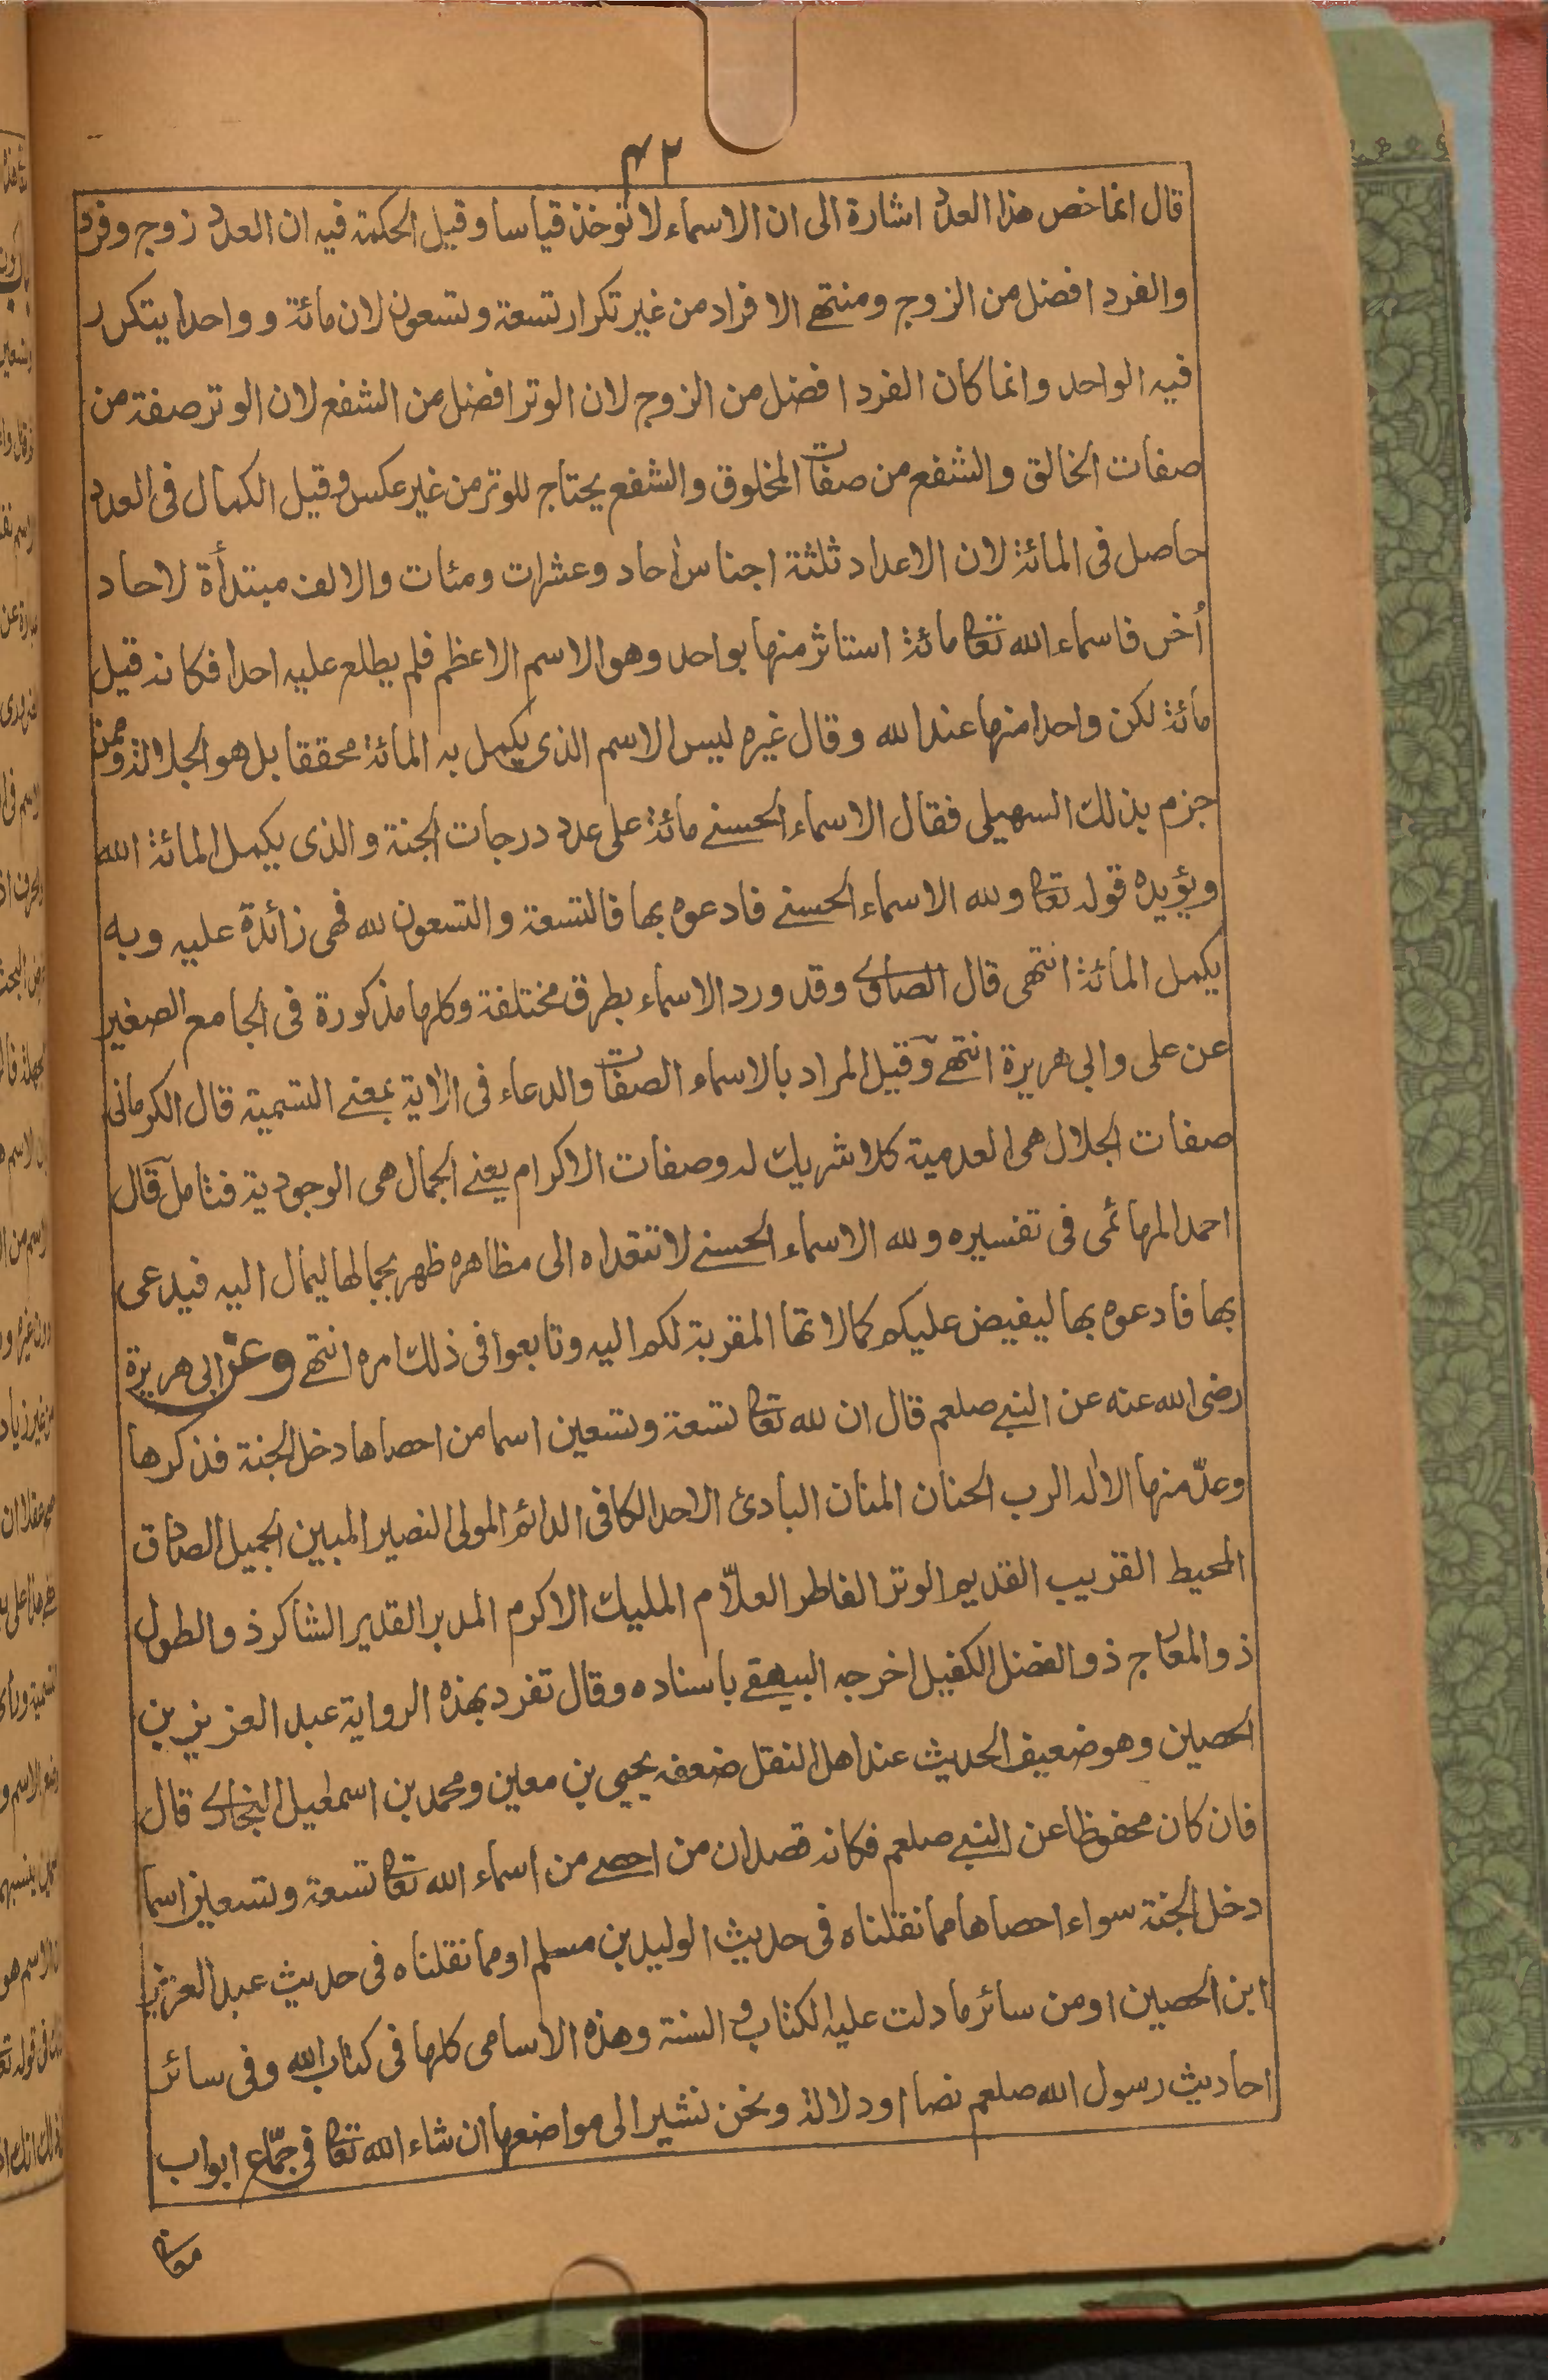 ٤٢
قال انما خص هذا العدد اشارة الى ان الاسماء لا تؤخذ قياسا وقيل الحكمة فيه ان العدد زوج وفرد
والفرد افضل من الزوج ومنتهى الافراد من غير تكرار تسعة وتسعون لان مائة وواحدا يتكرر
فيه الواحد وانما كان الفرد افضل من الزوج لان الوتر افضل من الشفع لان الوتر صفة من
صفات الخالق والشفع من صفات المخلوق والشفع يحتاج للوتر من غير عكس وقيل الكمال فى العدد
حاصل فى المائة لان الاعداد ثلثة اجناس أحاد وعشرات ومئات والالف مبتدأة لاحاد
أخر فاسماء الله تعا مائة استاثر منها بواحد وهو الاسم الاعظم فلم يطلع عليه احدا فكانه قيل
مائة لكن واحدا منها عند الله وقال غيره ليس الاسم الذى يكمل به المائة محققا بل هو الجلالة وممن
جزم بذلك السهيلى فقال الاسماء الحسنے مائة على عدد درجات الجنة والذى يكمل المائة الله
ويؤيده قوله تعا ولله الاسماء الحسنے فادعوه بها فالتسعة والتسعون لله فهى زائدة عليه وبه
يكمل المائة انتهى قال الصاوى وقد ورد الاسماء بطرق مختلفة وكلها مذكورة فى الجامع الصغير
عن على وابى هريرة انتهے وقيل المراد بالاسماء الصفات والدعاء فى الاية بمعنے التسمية قال الكرمانى
صفات الجلال هى العدمية كلا شريك له وصفات الاكرام يعنے الجمال هى الوجودية فتامل قال
احمد المهائمى فى تفسيره ولله الاسماء الحسنے لا تتعداه الى مظاهره ظهر بجمالها ليمال اليه فيدعى
بها فادعوه بها ليفيض عليكم كمالاتها المقربة لكم اليه وتابعوا فى ذلك امره انتهے وعن ابى هريرة
رضى الله عنه عن النبے صلعم قال ان لله تعا تسعة وتسعين اسما من احصاها دخل الجنة فذكرها
وعدّ منها الاله الرب الحنان المنان البادئ الاحد الكافى الدائم المولى النصير المبين الجميل الصادق
المحيط القريب القديم الوتر الفاطر العلّام المليك الاكرم المدبر القدير الشاكر ذو الطول
ذو المعارج ذو الفضل الكفيل اخرجه البيهقے باسناده وقال تفرد بهذه الرواية عبد العزيز بن
الحصين وهو ضعيف الحديث عند اهل النقل ضعفه يحيى بن معين ومحمد بن اسمٰعيل البخارى قال
فان كان محفوظا عن النبے صلعم فكانه قصد ان من احصے من اسماء الله تعا تسعة وتسعين اسما
دخل الجنة سواء احصاها مما نقلناه فى حديث الوليد بن مسلم او مما نقلناه فى حديث عبد العزيز
ابن الحصين او من سائر ما دلت عليه الكتاب و السنة وهذه الاسامى كلها فى كتاب الله وفى سائر
احاديث رسول الله صلعم نصا او دلالة ونحن نشير الى مواضعها ان شاء الله تعا فى جمّاع ابواب
معا